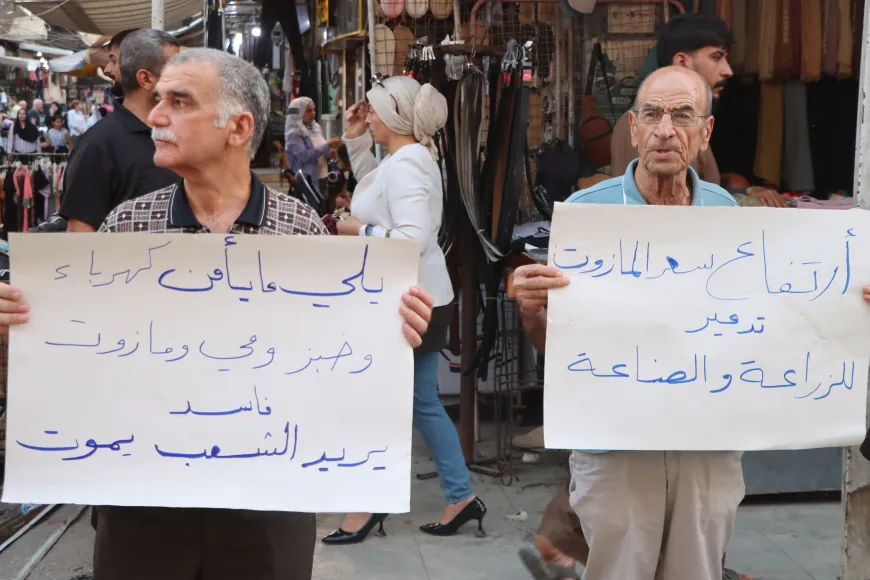 يلي مايأمن كهرباء
وخبز ومي ومازوت
فاسد
يريد الشعب يموت
أرتفاع سعر المازوت
تدمير
للزراعة والصناعة